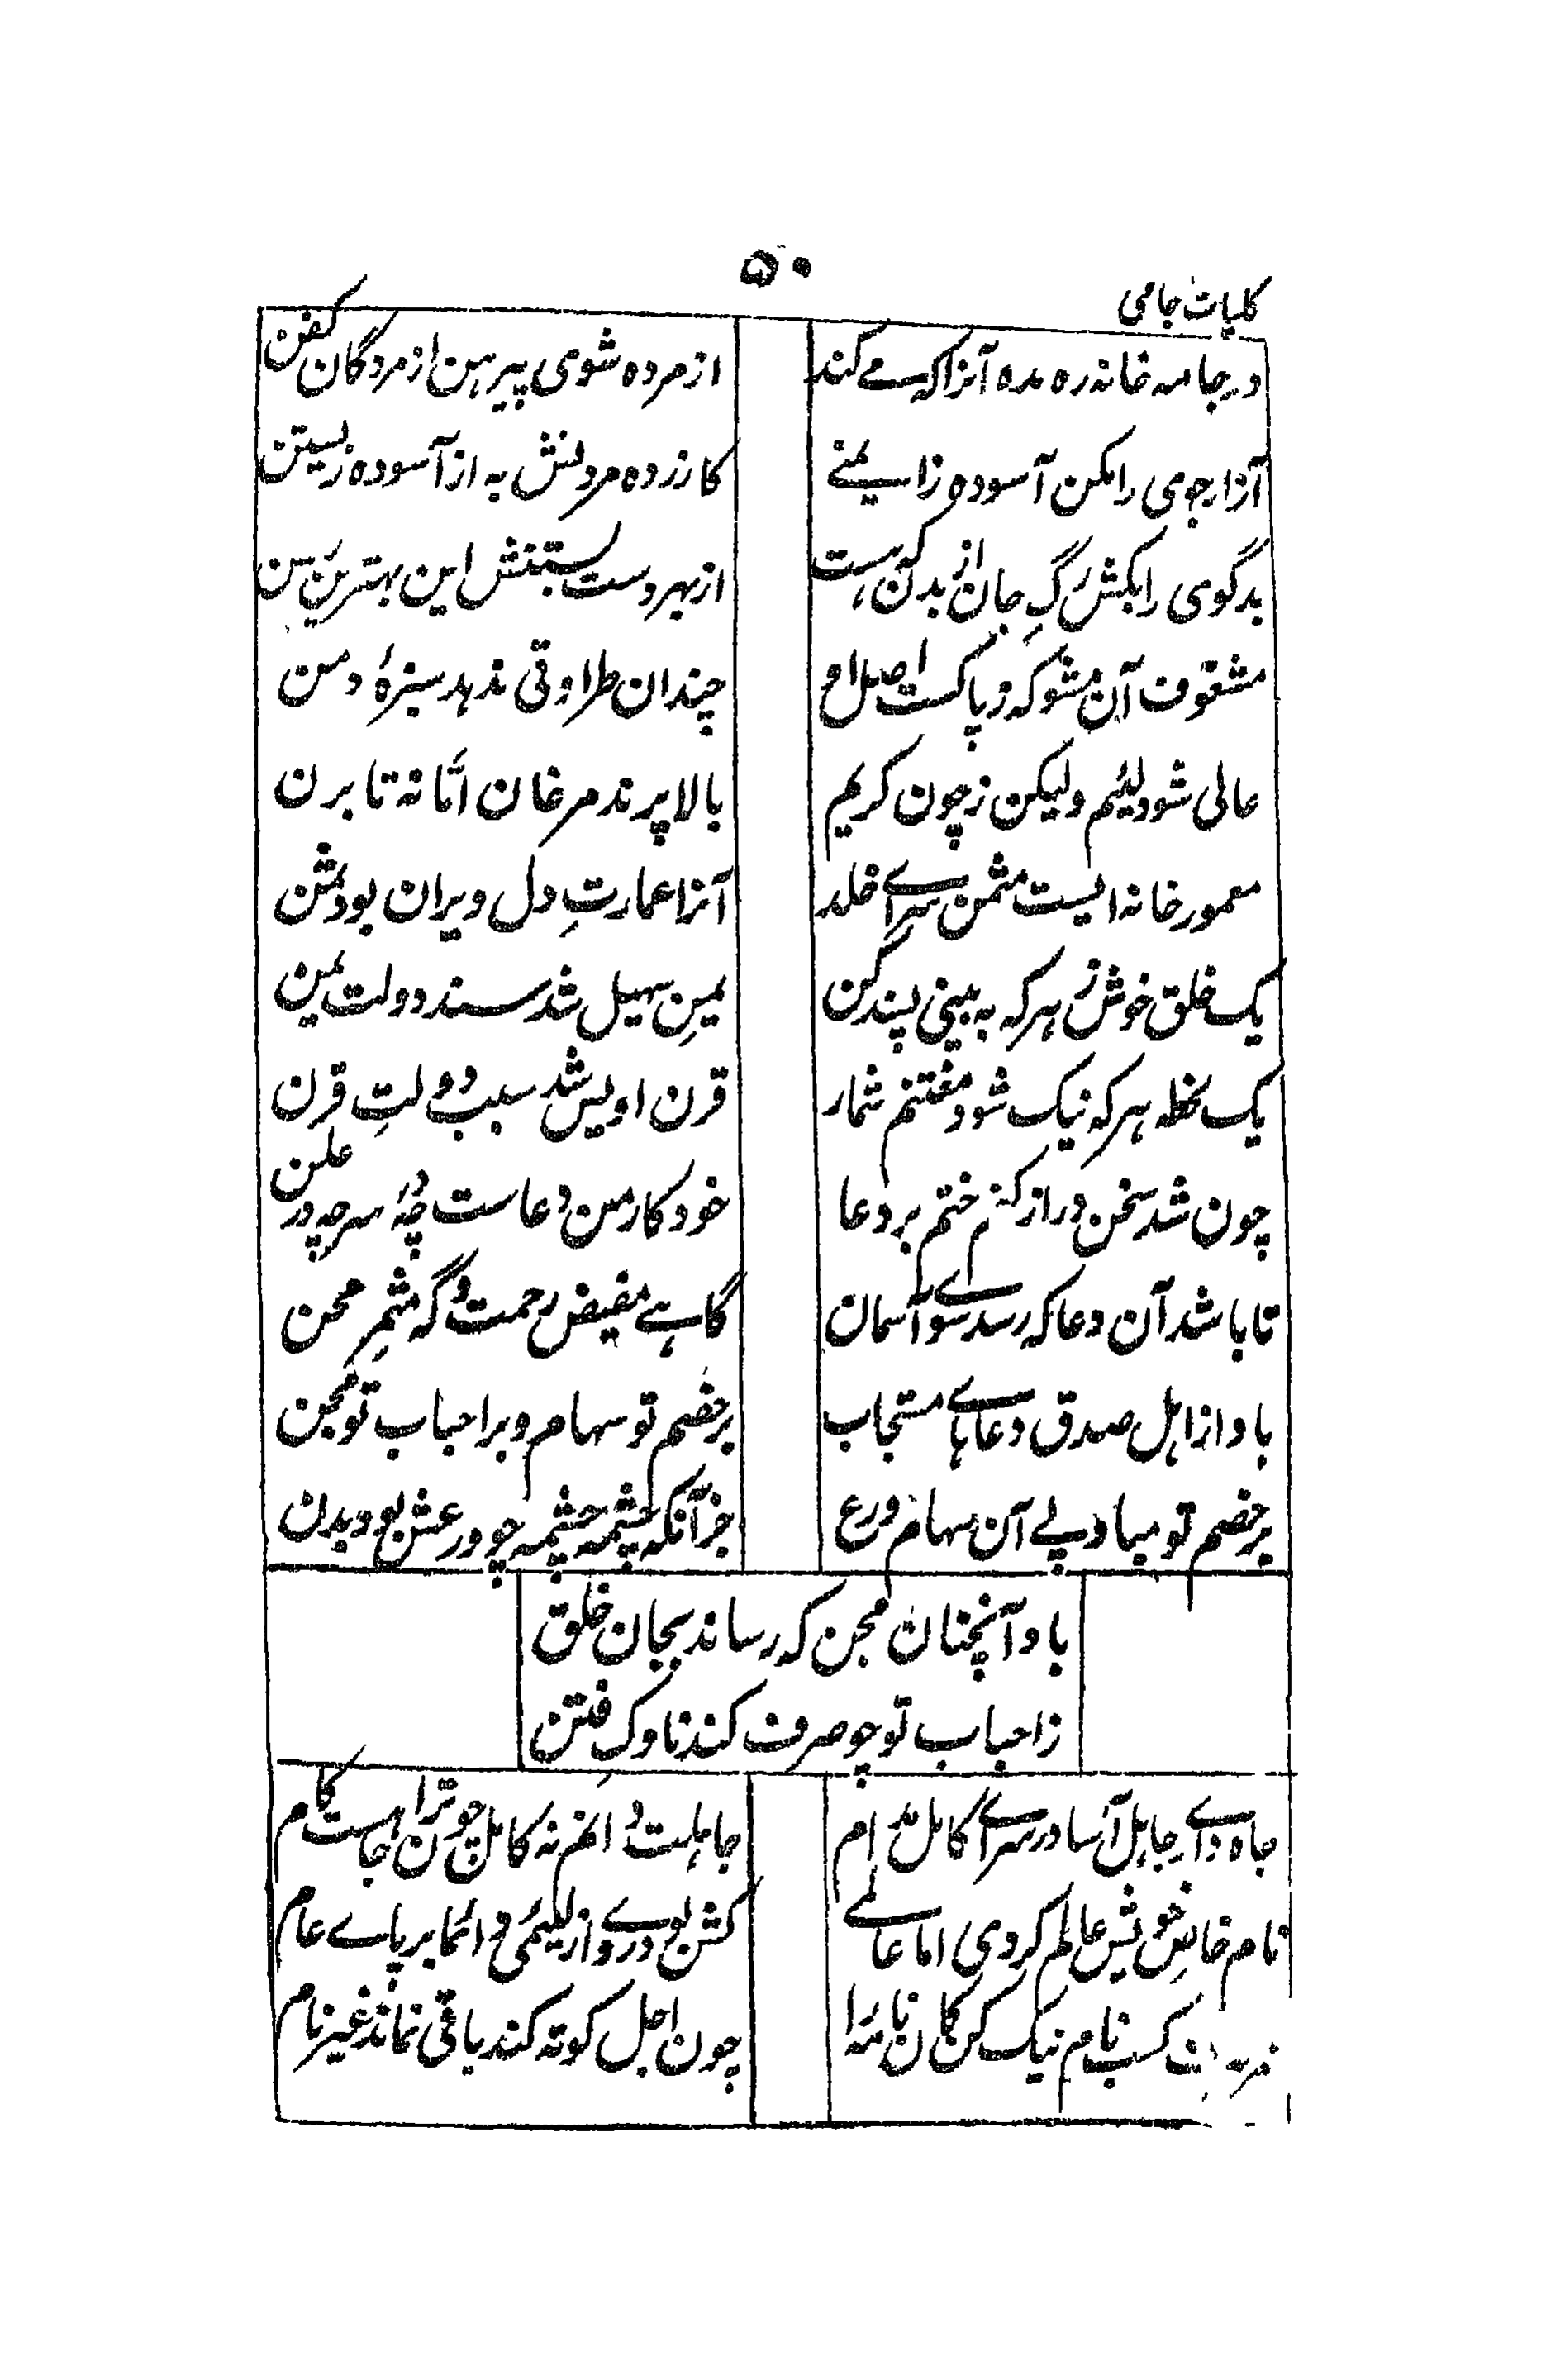 ۵۰
کلیات جامی
در جامہ خانہ رہ مدہ آنرا کہ مے کند
از مردہ شوی پیرہن از مردگان کفن
آزار جوی را مکن آسودہ زایمنے
کازردہ مردنش بہ از آسودہ زیستن
بدگوی را بکش رگ جان از بدن کہ ہست
از بہر دست بستنش این بہترین رسن
مشغوف آن مشو کہ نہ پاکست اصل او
چندان طراوتی ندہد سبزۂ دمن
عالی شود لئیم ولیکن نہ چون کریم
بالا پرند مرغان اما نہ تا برن
معمور خانہ ایست مثمن سرے خلد
آنرا عمارتِ دل ویران بود ثمن
یک خلق خوش ز ہر کہ بہ بینی پسند کن
یمنِ سہیل شد سند دولت یمن
یک لحظہ ہر کہ نیک شود مغتنم شمار
قرن اویس شد سبب دولتِ قرن
چون شد سخن دراز کنم ختم بر دعا
خود کار من دعاست چہ در سر چہ در علن
تا باشد آن دعا کہ رسد سوے آسمان
گاہے مفیض رحمت و گہ مثمرِ محن
باد از اہل صدق دعاہاے مستجاب
بر خصم تو سہام و بر احباب تو مجن
بر خصم تو مباد پے آن سہام درع
جز آنکہ چشمہ چشمہ چو درعش بود بدن
باد آنچنان مجن کہ رساند بجان خلق
ز احباب تو چو صرف کند ناوک فتن
جاہ داری جاہل آسا در سراے کامل مدام
جاہلست و انہم نہ کامل چون ترا جاہست کام
نام خاص خویش عالم کردی اما عالمے
کش بوے دروازلئیمی دائما بر پاے عام
کسب نام نیک کن کان نامہ را
چون اجل کوتہ کند باقی نماند غیر نام